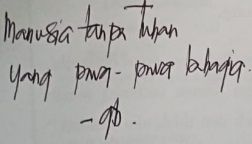 Manusia tanpa Tuhan
yang pura-pura bahagia.